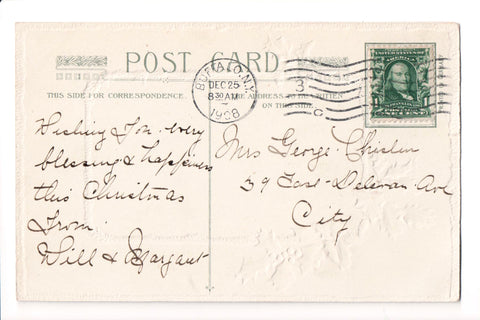 POST CARD
THIS SIDE FOR CORRESPONDENCE. THE ADDRESS TO BE WRITTEN
ON THIS SIDE
BUFFALO, N.Y.
DEC 25
8 30 AM
1908
3
C
1 1
ONE CENT
Wishing You every
blessing & happiness
this Christmas
From
Will & Margaret
Mrs George Chislin
59 East Delevan Ave
City